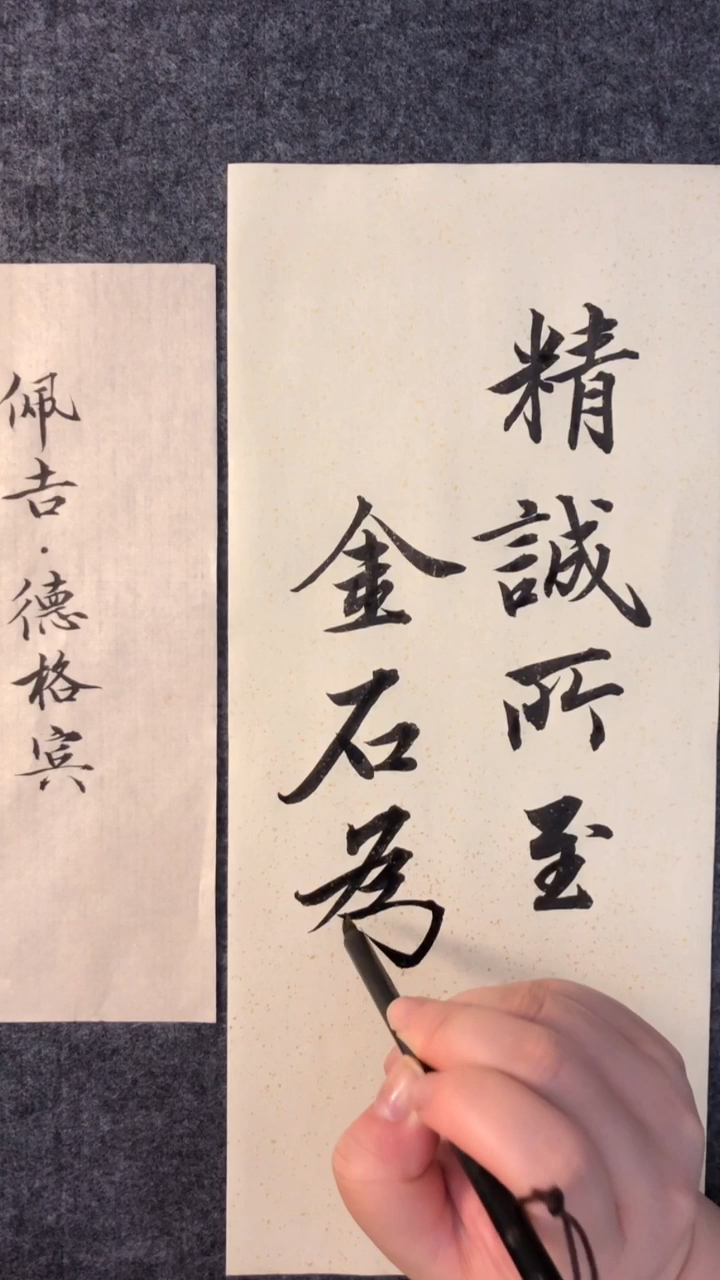 精誠所至
金石為
佩吉·德格宾